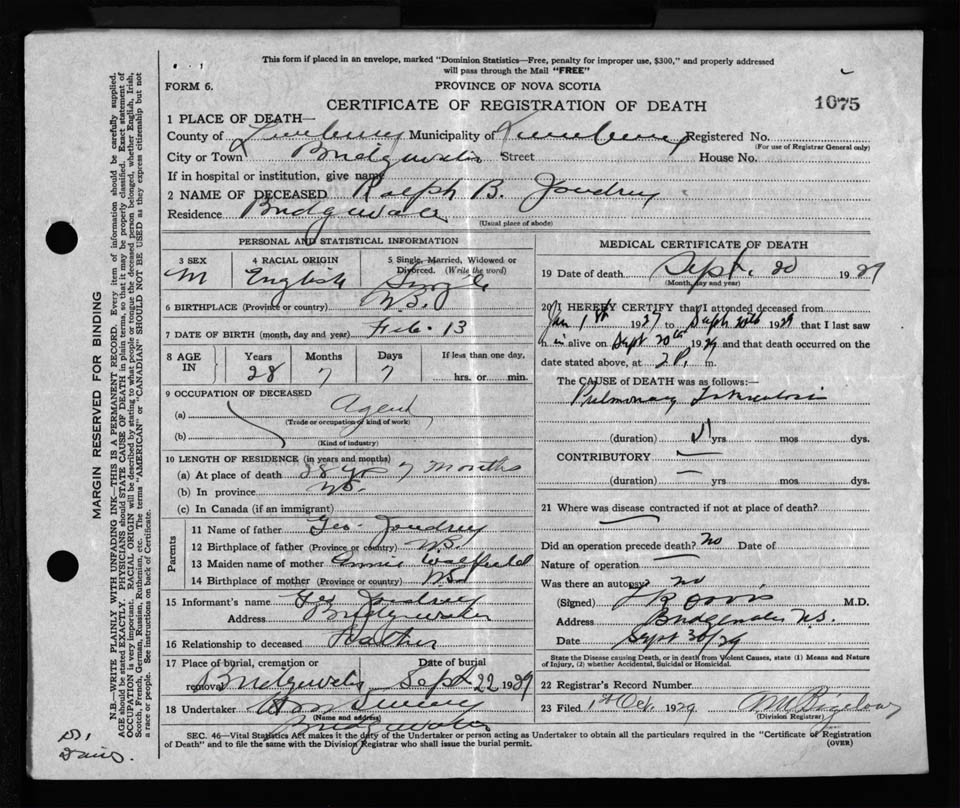 This form if placed in an envelope, marked "Dominion Statistics—Free, penalty for improper use, $300," and properly addressed
will pass through the Mail "FREE"
FORM 6.
PROVINCE OF NOVA SCOTIA
CERTIFICATE OF REGISTRATION OF DEATH
1075
1 PLACE OF DEATH—
County of Lunenburg Municipality of Lunenburg Registered No.
(For use of Registrar General only)
City or Town Bridgewater Street House No.
If in hospital or institution, give name
2 NAME OF DECEASED Ralph B. Joudrey
Residence Bridgewater
(Usual place of abode)
PERSONAL AND STATISTICAL INFORMATION
3 SEX 4 RACIAL ORIGIN 5 Single, Married, Widowed or
Divorced. (Write the word)
M English Single
6 BIRTHPLACE (Province or country) N.S.
7 DATE OF BIRTH (month, day and year) Feb. 13
8 AGE IN Years Months Days If less than one day,
28 7 7 hrs. or min.
9 OCCUPATION OF DECEASED
(a) Agent
(Trade or occupation of kind of work)
(b)
(Kind of industry)
10 LENGTH OF RESIDENCE (in years and months)
(a) At place of death 28 yrs 7 months
(b) In province N.S.
(c) In Canada (if an immigrant)
Parents
11 Name of father Geo Joudrey
12 Birthplace of father (Province or country) N.S.
13 Maiden name of mother Annie
14 Birthplace of mother (Province or country) N.S.
15 Informant's name Geo Joudrey
Address Bridgewater
16 Relationship to deceased Father
17 Place of burial, cremation or Date of burial
removal Bridgewater Sept 22 1929
18 Undertaker
(Name and address)
Bridgewater
MEDICAL CERTIFICATE OF DEATH
19 Date of death Sept. 20 1929
(Month, day and year)
20 I HEREBY CERTIFY that I attended deceased from
Jan 1st 1927 to Sept 20th 1929 that I last saw
him alive on Sept 20th 1929 and that death occurred on the
date stated above, at 2 P. m.
The CAUSE OF DEATH was as follows:—
Pulmonary Tuberculosis
(duration) yrs mos dys.
CONTRIBUTORY
(duration) yrs mos dys.
21 Where was disease contracted if not at place of death?
Did an operation precede death? No Date of
Nature of operation
Was there an autopsy? no
(Signed) M.D.
Address Bridgewater N.S.
Date Sept 30/29
State the Disease causing Death, or in death from Violent Causes, state (1) Means and Nature
of Injury, (2) whether Accidental, Suicidal or Homicidal.
22 Registrar's Record Number
23 Filed 1st Oct. 1929
(Division Registrar)
SEC. 46—Vital Statistics Act makes it the duty of the Undertaker or person acting as Undertaker to obtain all the particulars required in the "Certificate of Registration
of Death" and to file the same with the Division Registrar who shall issue the burial permit. (OVER)
MARGIN RESERVED FOR BINDING
N.B.—WRITE PLAINLY WITH UNFADING INK—THIS IS A PERMANENT RECORD. Every item of information should be carefully supplied.
AGE should be stated EXACTLY. PHYSICIANS should STATE CAUSE OF DEATH in plain terms, so that it may be properly classified. Exact statement of
OCCUPATION is very important. RACIAL ORIGIN will be described by stating to what people or tongue the deceased person belonged, whether English, Irish,
Scotch, French, German, Russian, Ruthenian, etc. The terms "AMERICAN" or "CANADIAN" SHOULD NOT BE USED as they express citizenship but not
a race or people. See instructions on back of Certificate.
Davis.